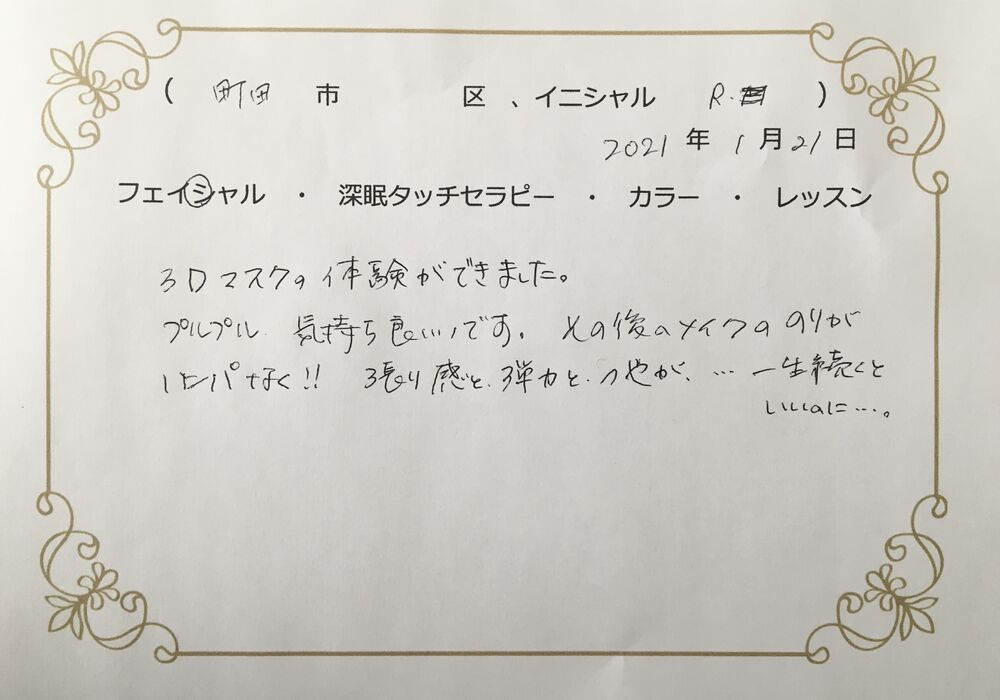 ( 町田 市 区 、イニシャル R. )
2021 年 1 月 21 日
フェイシャル ・ 深眠タッチセラピー ・ カラー ・ レッスン
3Dマスクの体験ができました。
プルプル 気持ち良いです。その後のメイクののりが
ハンパなく!! 張り感と、弾力と、つやが、… 一生続くと
いいのに…。